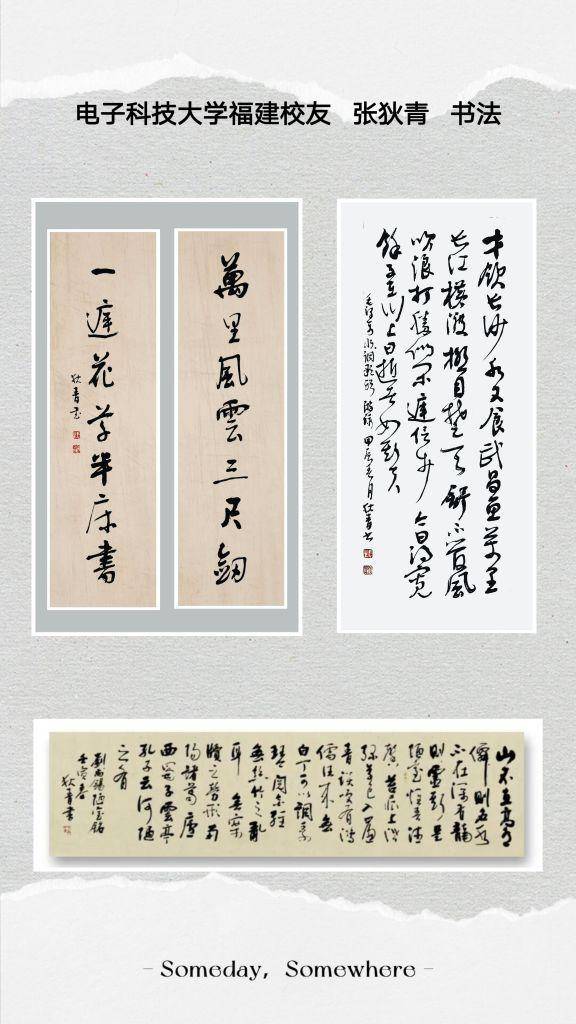 电子科技大学福建校友 张狄青 书法
萬里風雲三尺劔
一庭花草半床書
狄青書
才飲長沙水又食武昌魚萬里
長江橫渡極目楚天舒不管風
吹浪打勝似閑庭信步今日得寬
餘子在川上曰逝者如斯夫
毛澤東水調歌頭游泳甲辰春月狄青書
山不在高有
僊則名水
不在深有龍
則靈斯是
陋室惟吾德
馨苔痕上階
綠草色入簾
青談笑有鴻
儒往來無
白丁可以調素
琴閱金經
無絲竹之亂
耳無案
牘之勞形南
陽諸葛廬
西蜀子雲亭
孔子云何陋
之有
劉禹錫陋室銘
壬寅春
狄青書
- Someday, Somewhere -